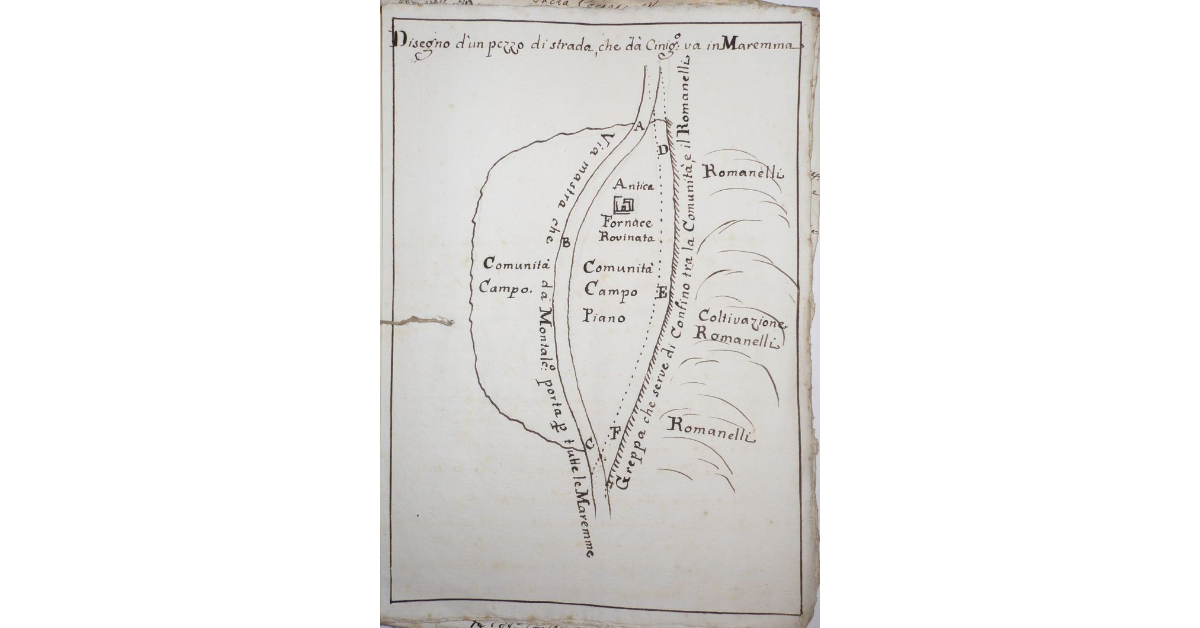 Disegno d'un pezzo di strada, che dà Cinig.º va in Maremma
A
Via mastra che dà Montalc.º porta p tutte le Maremme
D
Greppa che serve di Confino tra la Comunità, e il Romanelli
Romanelli
Antica
Fornace
Rovinata
B
Comunità
Campo.
Comunità
Campo
Piano
E
Coltivazione
Romanelli
F
Romanelli
C